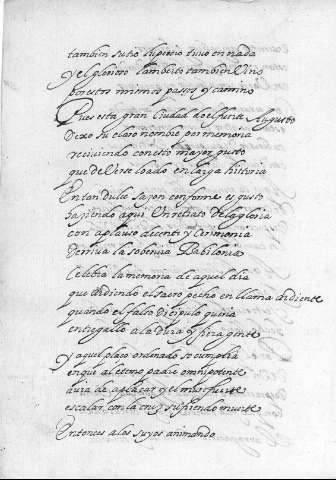 tambien su tio Superio tuvo en nada
y el glorioso Lamberto tambien Vino
por estos mismos pasos y camino
Pues esta gran Ciudad do el fuerte Augusto
Dexo su claro nombre por memoria
reciviendo con esto mayor gusto
que de Verse loado en larga historia
En tan dulce sazon conforme es gusto
haziendo aqui Un retrato de la gloria
con aplauso decente y Cerimonia
derriva la sobervia Babilonia
Celebra la memoria de aquel dia
que ardiendo el sacro pecho en llama ardiente
quando el falso dicipulo queria
entregallo a la dura y fiera gente
y aquel plaço ordenado se cumplia
en que al eterno padre omnipotente
avia de aplacar y el mas fuerte
escalar con la cruz sufriendo muerte
Entonces a los suyos animando